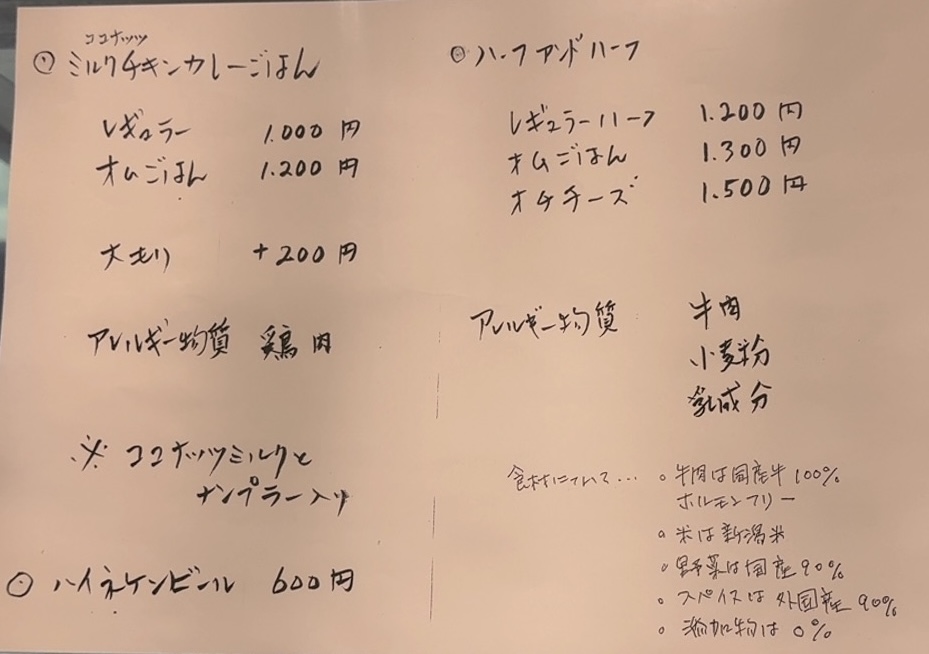 ココナッツ
◎ ミルクチキンカレーごはん
レギュラー 1.000円
オムごはん 1.200円
大もり +200円
アレルギー物質 鶏肉
※ ココナッツミルクと
ナンプラー入り
◎ ハイネケンビール 600円
◎ ハーフアンドハーフ
レギュラーハーフ 1.200円
オムごはん 1.300円
オチチーズ 1.500円
アレルギー物質 牛肉
小麦粉
乳成分
食材について... ○ 牛肉は国産牛 100%
ホルモンフリー
○ 米は新潟米
○ 野菜は国産 90%
○ スパイスは外国産 90%
○ 添加物は 0%